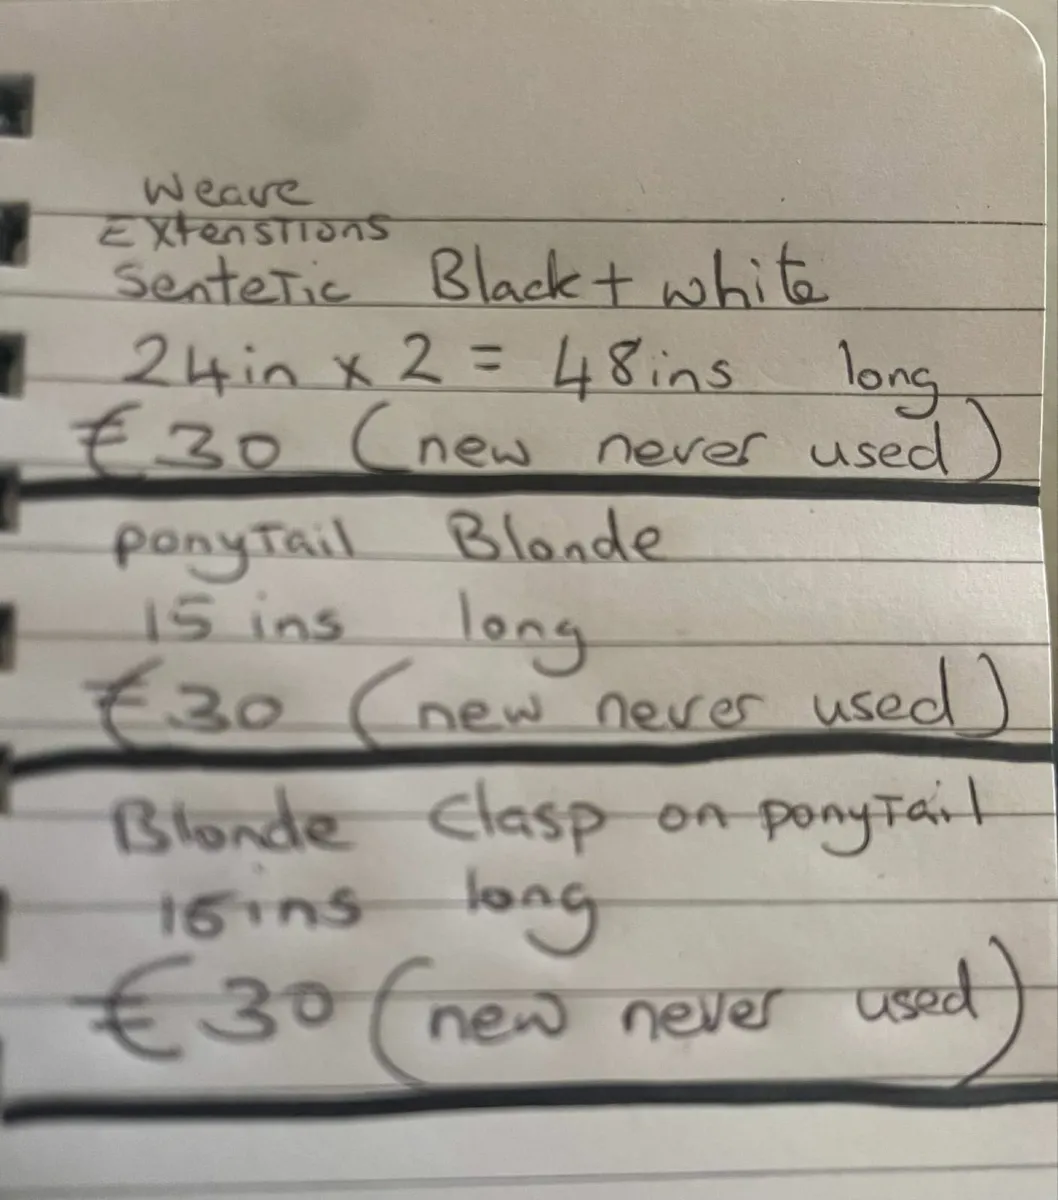 Weave
Extenstions
Sentetic Black + white
24in x 2 = 48ins long
€30 (new never used)
ponytail Blonde
15 ins long
€30 (new never used)
Blonde Clasp on ponytail
16ins long
€30 (new never used)